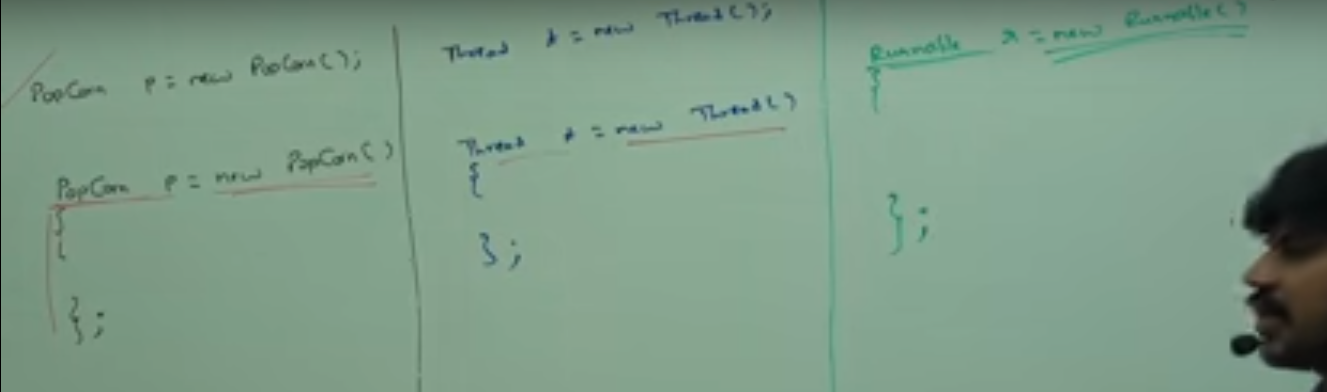 PopCorn p = new PopCorn();
PopCorn p = new PopCorn()
{
};
Thread t = new Thread();
Thread t = new Thread()
{
};
Runnable r = new Runnable()
{
};